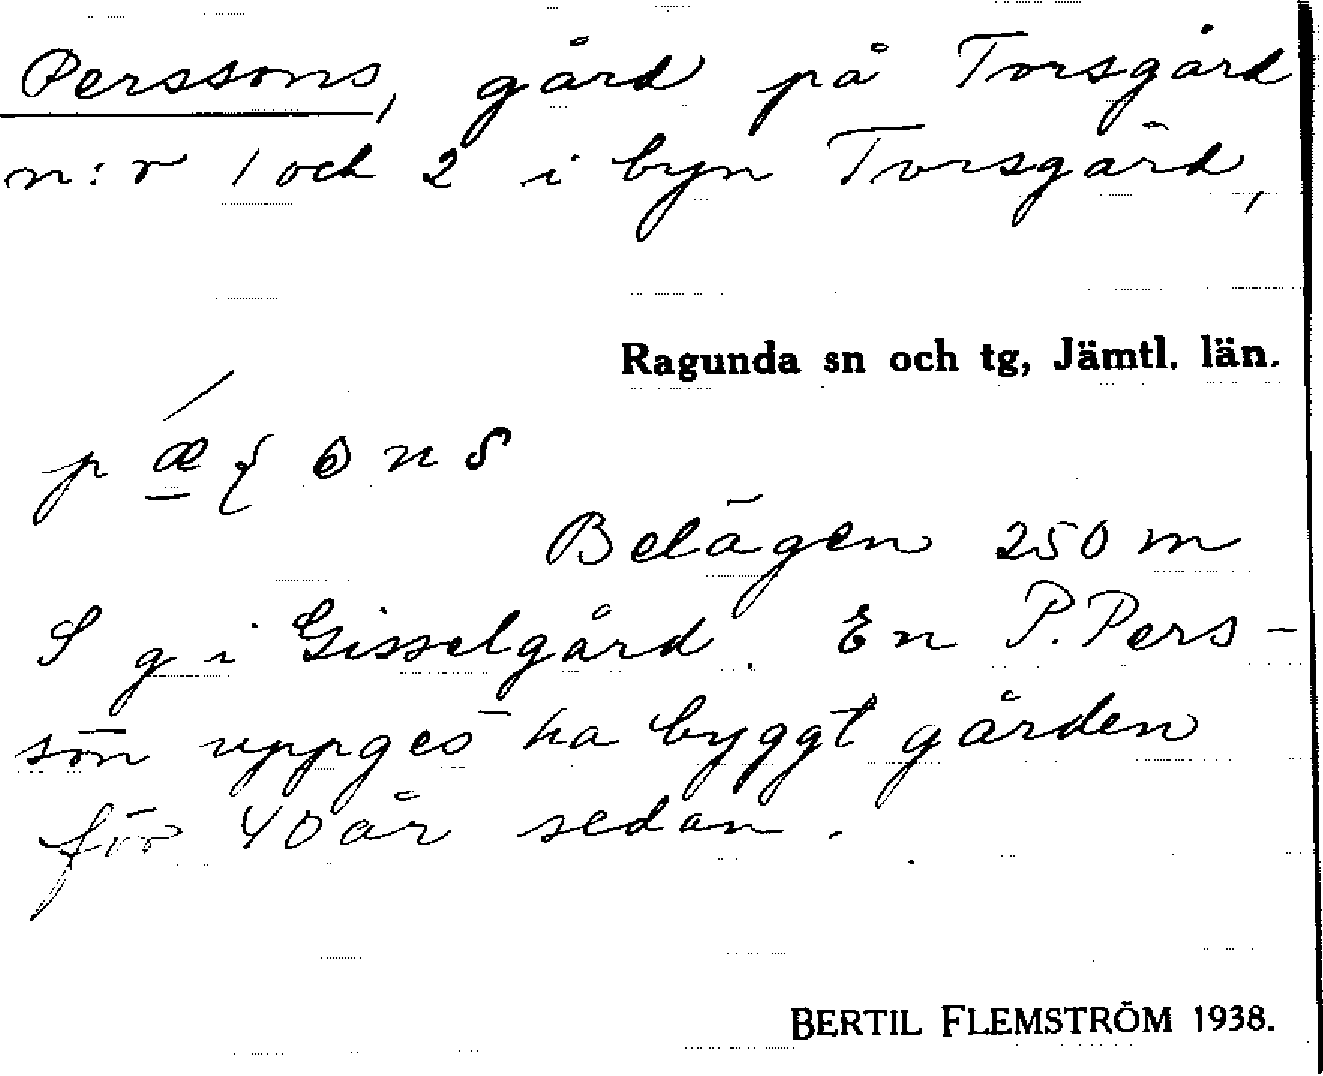 Perssons, gård på Torsgård
n:r 1 och 2 i byn Torsgård,
Ragunda sn och tg, Jämtl. län.
Belägen 250 m
S g i Gisselgård. En P. Pers-
son uppges ha byggt gården
för 40 år sedan.
BERTIL FLEMSTRÖM 1938.